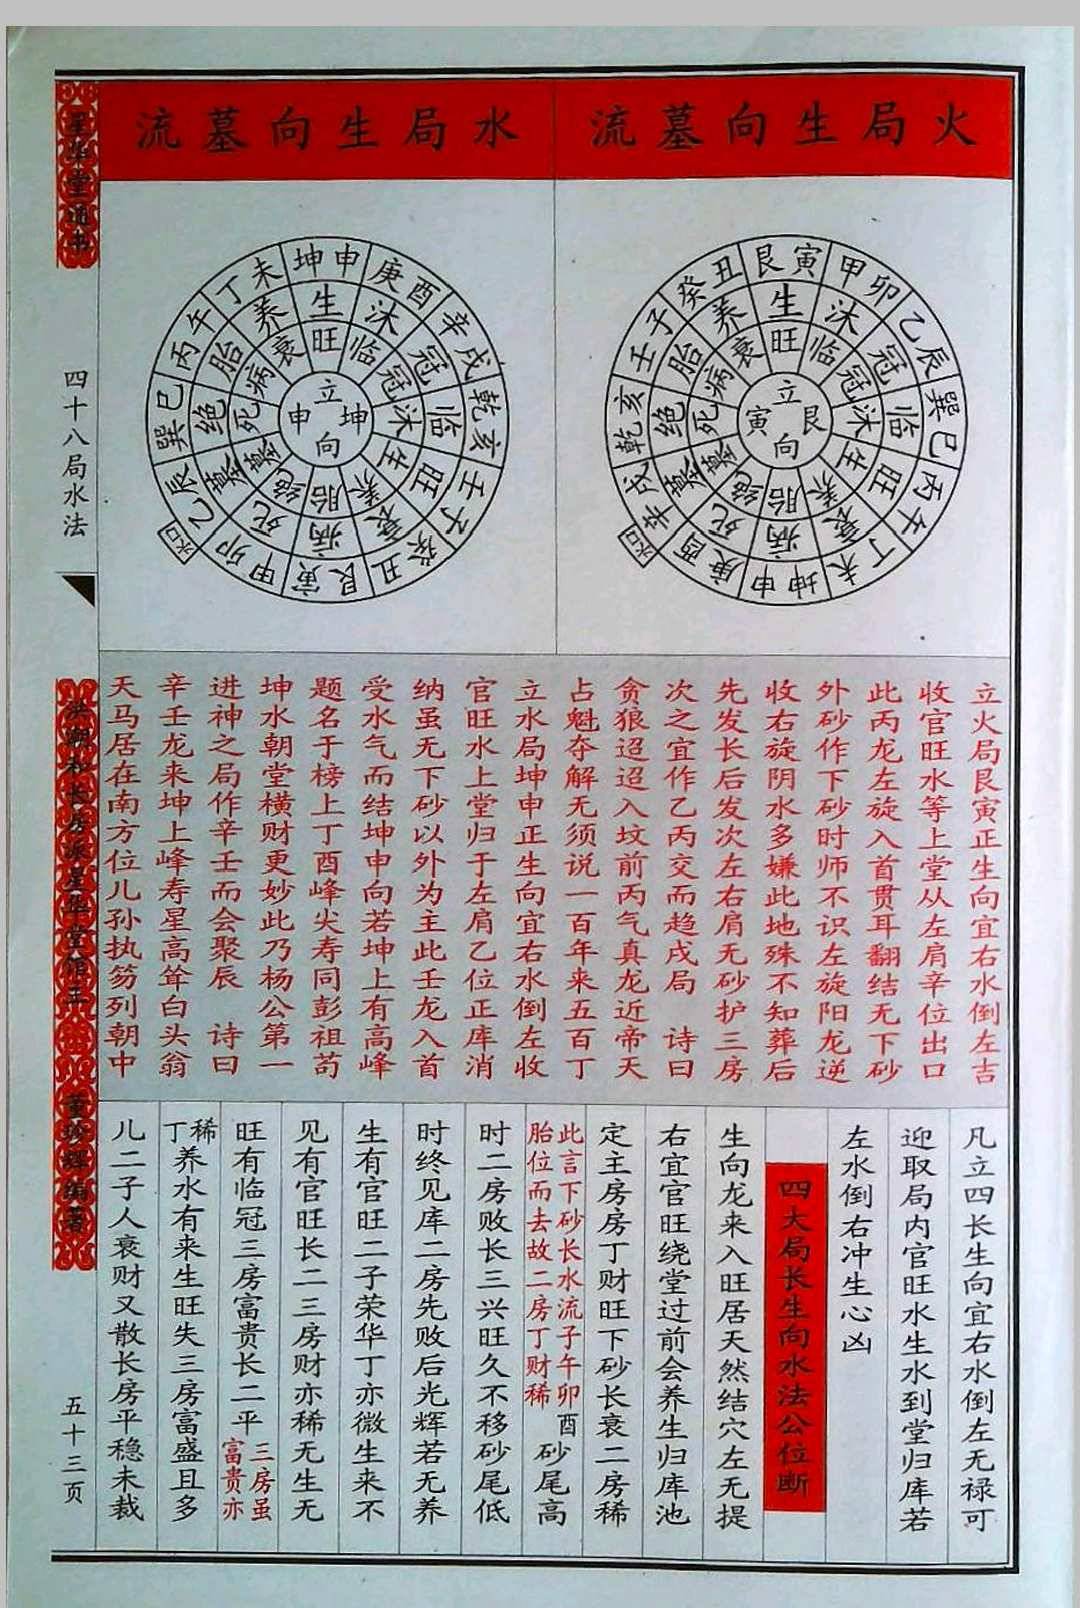 火局生向墓流
水局生向墓流
星华堂通书
四十八局水法
五十三页
董珍辉编著
艮寅
甲卯
乙辰
巽巳
丙午
丁未
坤申
庚酉
辛戌
乾亥
壬子
癸丑
生
沐
冠
临
旺
衰
病
死
墓
绝
胎
养
旺
临
冠
沐
生
养
胎
绝
墓
死
病
衰
立
艮
向
寅
水口
坤申
庚酉
辛戌
乾亥
壬子
癸丑
艮寅
甲卯
乙辰
巽巳
丙午
丁未
生
沐
冠
临
旺
衰
病
死
墓
绝
胎
养
旺
临
冠
沐
生
养
胎
绝
墓
死
病
衰
立
坤
向
申
水口
立火局艮寅正生向宜右水倒左吉
收官旺水等上堂从左肩辛位出口
此丙龙左旋入首贯耳翻结无下砂
外砂作下砂时师不识左旋阳龙逆
收右旋阴水多嫌此地殊不知葬后
先发长后发次左右肩无砂护三房
次之宜作乙丙交而趋戌局 诗曰
贪狼迢迢入坟前丙气真龙近帝天
占魁夺解无须说一百年来五百丁
立水局坤申正生向宜右水倒左收
官旺水上堂归于左肩乙位正库消
纳虽无下砂以外为主此壬龙入首
受水气而结坤申向若坤上有高峰
题名于榜上丁酉峰尖寿同彭祖苟
坤水朝堂横财更妙此乃杨公第一
进神之局作辛壬而会聚辰 诗曰
辛壬龙来坤上峰寿星高耸白头翁
天马居在南方位儿孙执笏列朝中
凡立四长生向宜右水倒左无禄可
迎取局内官旺水生水到堂归库若
左水倒右冲生心凶
四大局长生向水法公位断
生向龙来入旺居天然结穴左无提
右宜官旺绕堂过前会养生归库池
定主房房丁财旺下砂长衰二房稀
此言下砂长水流子午卯酉
胎位而去故二房丁财稀
砂尾高
时二房败长三兴旺久不移砂尾低
时终见库二房先败后光辉若无养
生有官旺二子荣华丁亦微生来不
见有官旺长二三房财亦稀无生无
旺有临冠三房富贵长二平
三房虽
富贵亦
稀
丁
养水有来生旺失三房富盛且多
儿二子人衰财又散长房平稳未裁